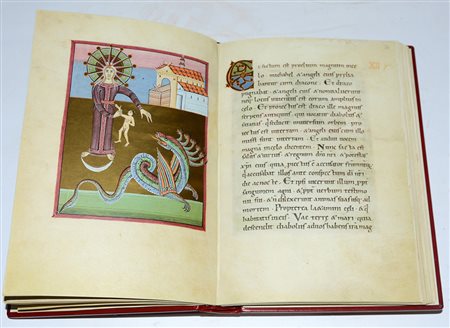 XII
Et factum est proelium magnum in ce
lo michahel & angeli eius prelia
bantur cum dracone · Et draco
pugnabat · & angeli eius & non ualuerunt
neq; locus inuentus est eorum amplius in
celo · Et proiectus est draco ille magnus
serpens antiquus · qui uocatur diabolus &
satanas · qui seducit uniuersum orbem · pro
iectus est in terram · & angeli eius
missi sunt · Et audiui uocem
magnam in celo dicentem · Nunc facta est
salus & uirtus · & regnum dei nri · & potestas
xpi eius · quia proiectus est accusator fratrum
qui accusabat illos ante conspectum di nri
die ac nocte · Et ipsi uicerunt illum ppt
sanguinem agni · & ppt uerbum testimo
nii sui · & dilexerunt animas suas usq; ad
mortem · Propterea laetamini celi · & qui
habitatis in eis · Vae terre & mari quia
descendit diabolus ad uos habens iram mag